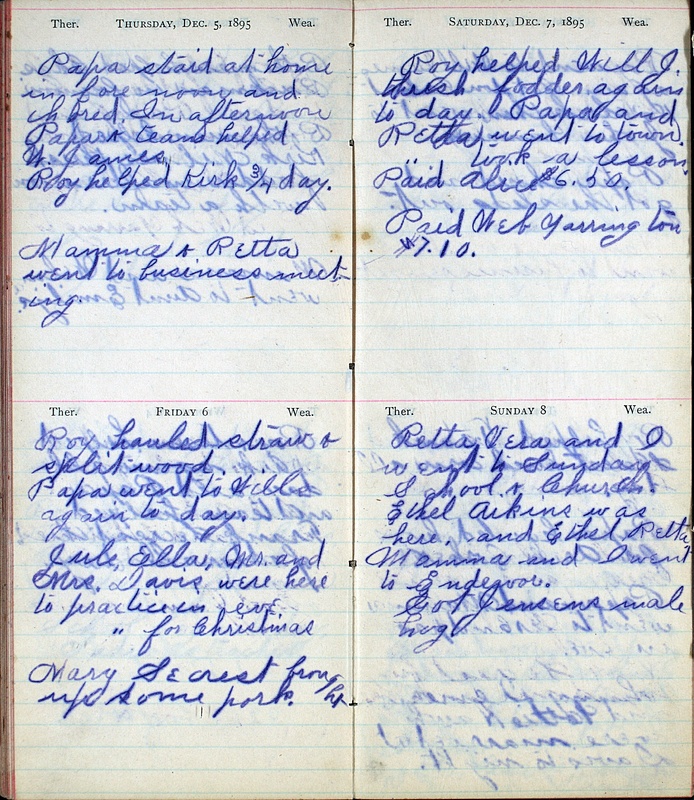 Ther. THURSDAY, DEC. 5, 1895 Wea.
Papa staid at home
in fore noon and
chored. In afternoon
Papa & team helped
W. James.
Roy helped Kirk 3/4 day.
Mamma & Retta
went to business meet-
ing.
Ther. FRIDAY 6 Wea.
Roy hauled straw &
split wood.
Papa went to Wills
again to day.
Jule, Ella, Mr. and
Mrs. Davis were here
to practice in eve.
" for Christmas
Mary Secrest brought
up some pork.
Ther. SATURDAY, DEC. 7, 1895 Wea.
Roy helped Will J.
thresh fodder again
to day. Papa and
Retta went to town.
" took a lesson.
Paid Alice $6.50.
Paid Web Yarrington
$7.10.
Ther. SUNDAY 8 Wea.
Retta, Vera and I
went to Sunday
School & Church.
Ethel Aikins was
here, and Ethel, Retta
Mamma and I went
to Endeavor.
Got Jensens male
hog.